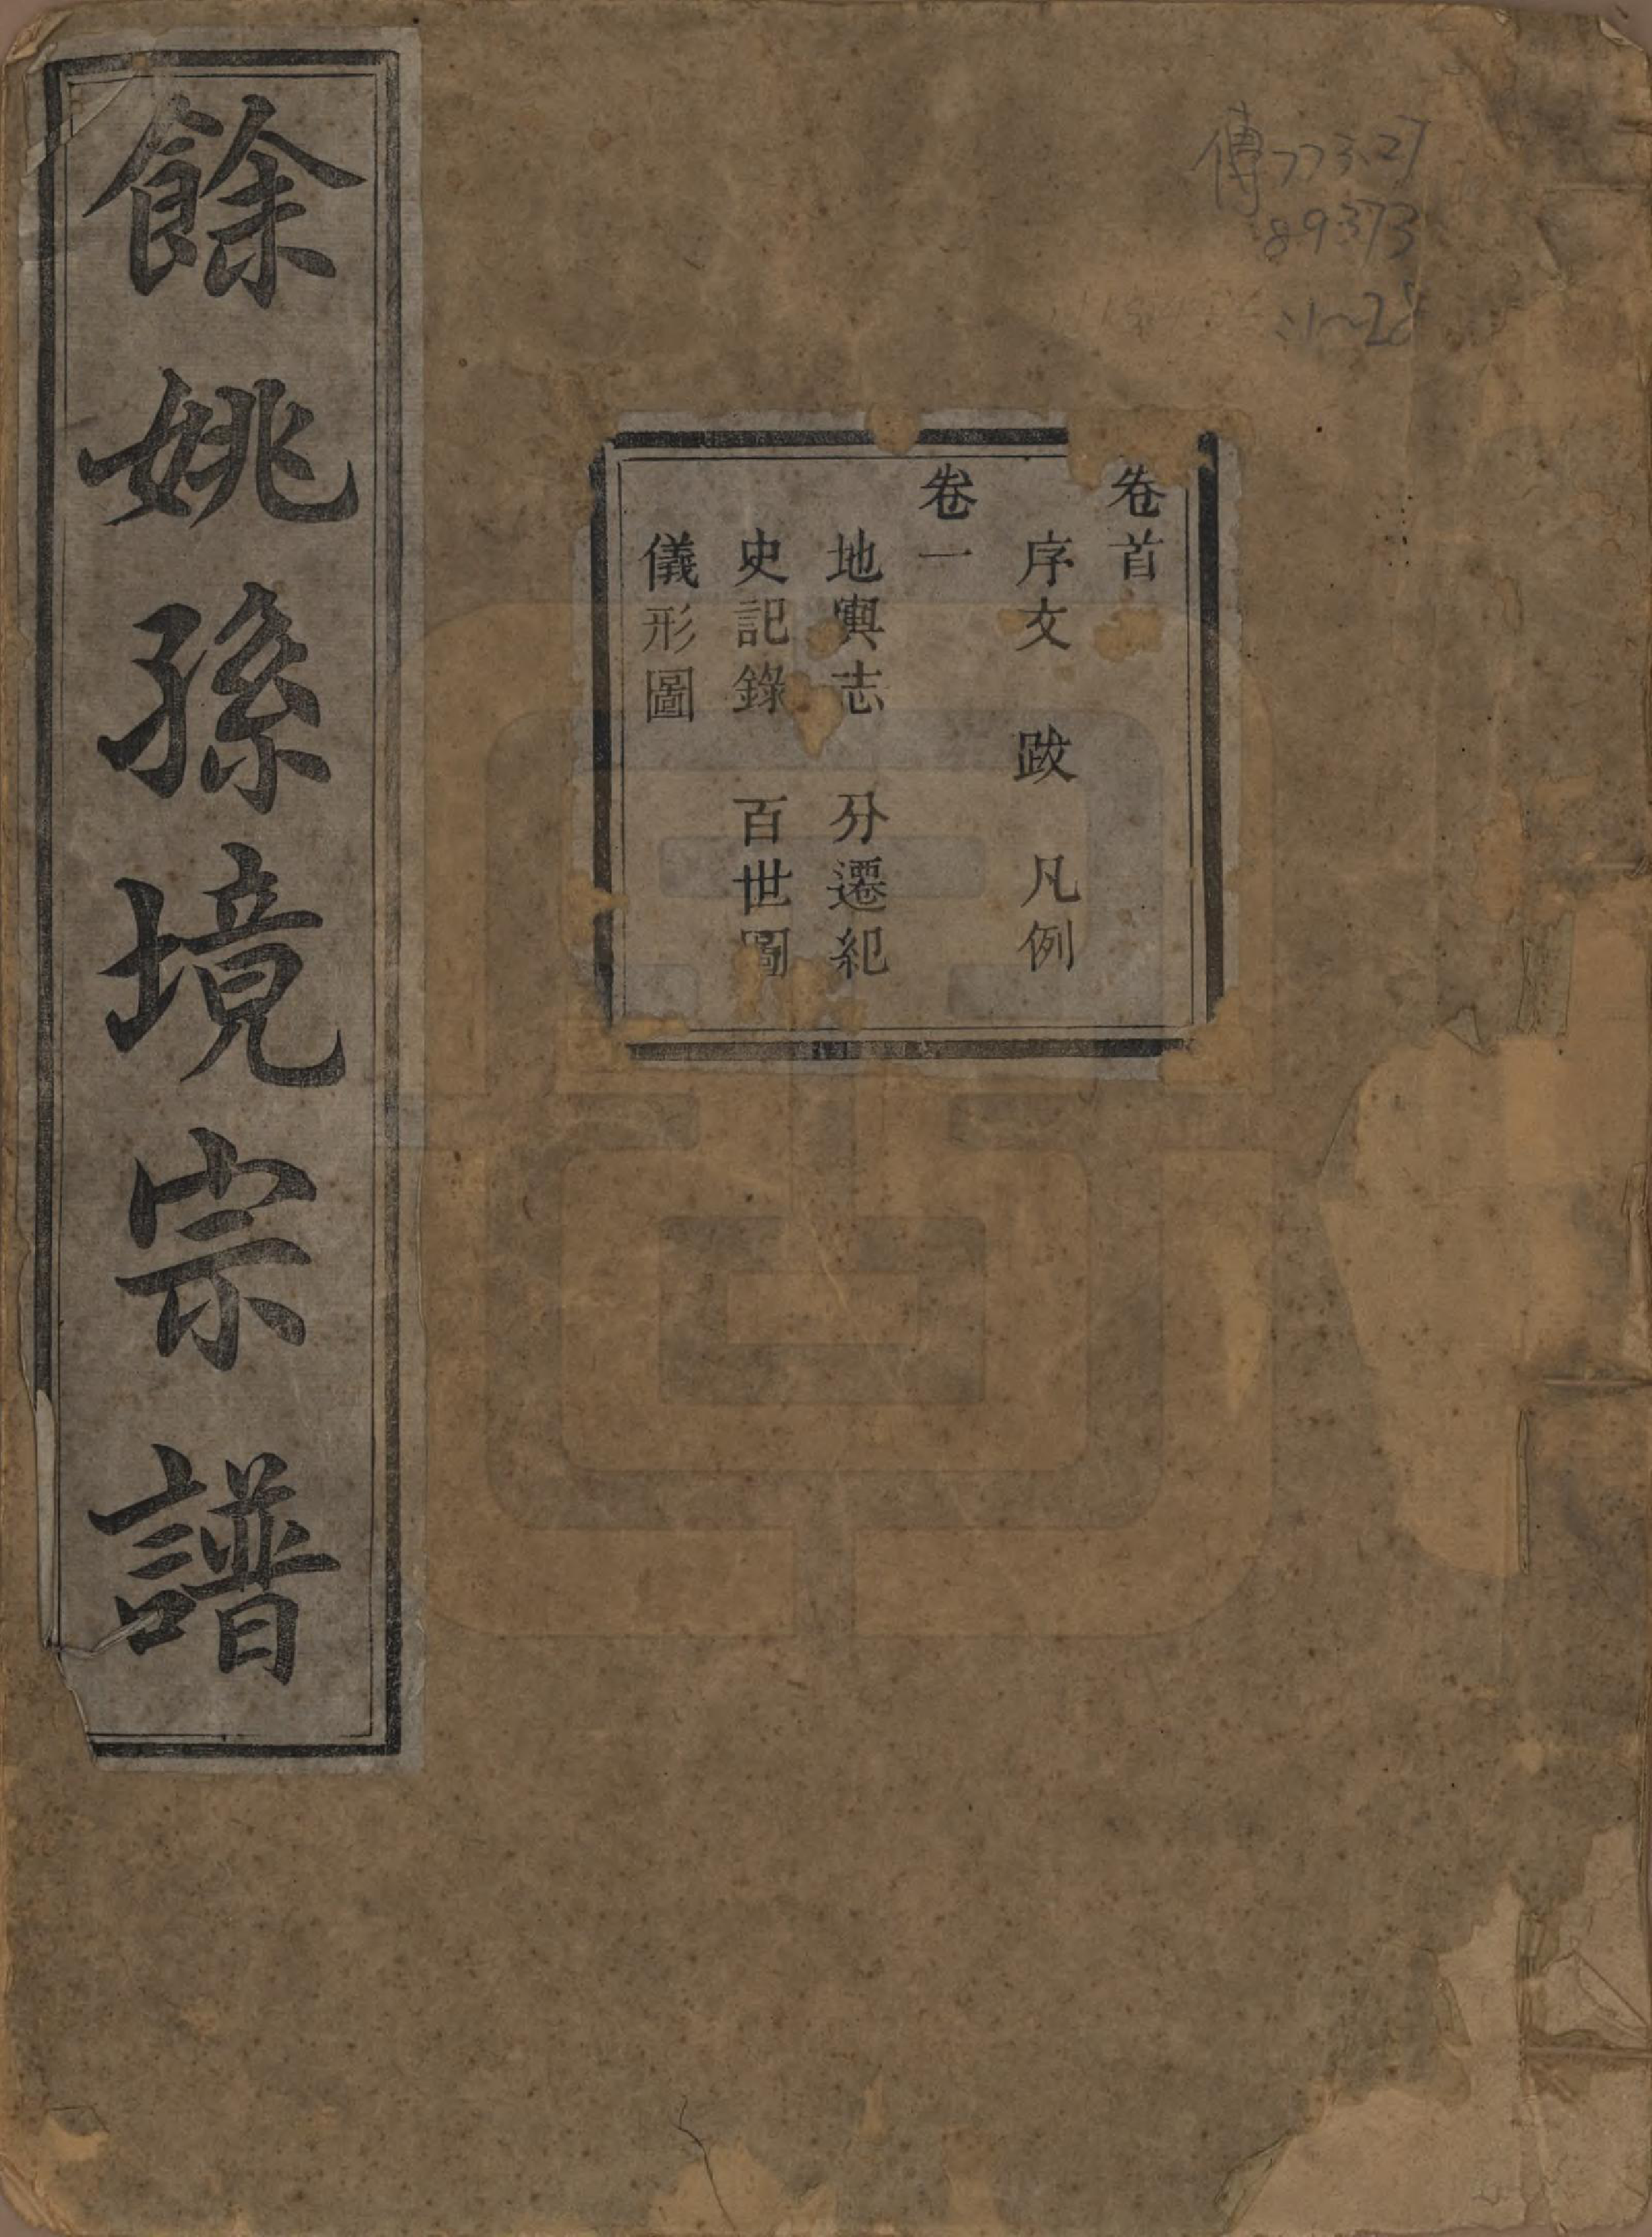 傳773.27
89373
:1~28
卷首
序文 跋 凡例
卷一
地輿志 分遷紀
史記錄 百世圖
儀形圖
餘姚孫境宗譜